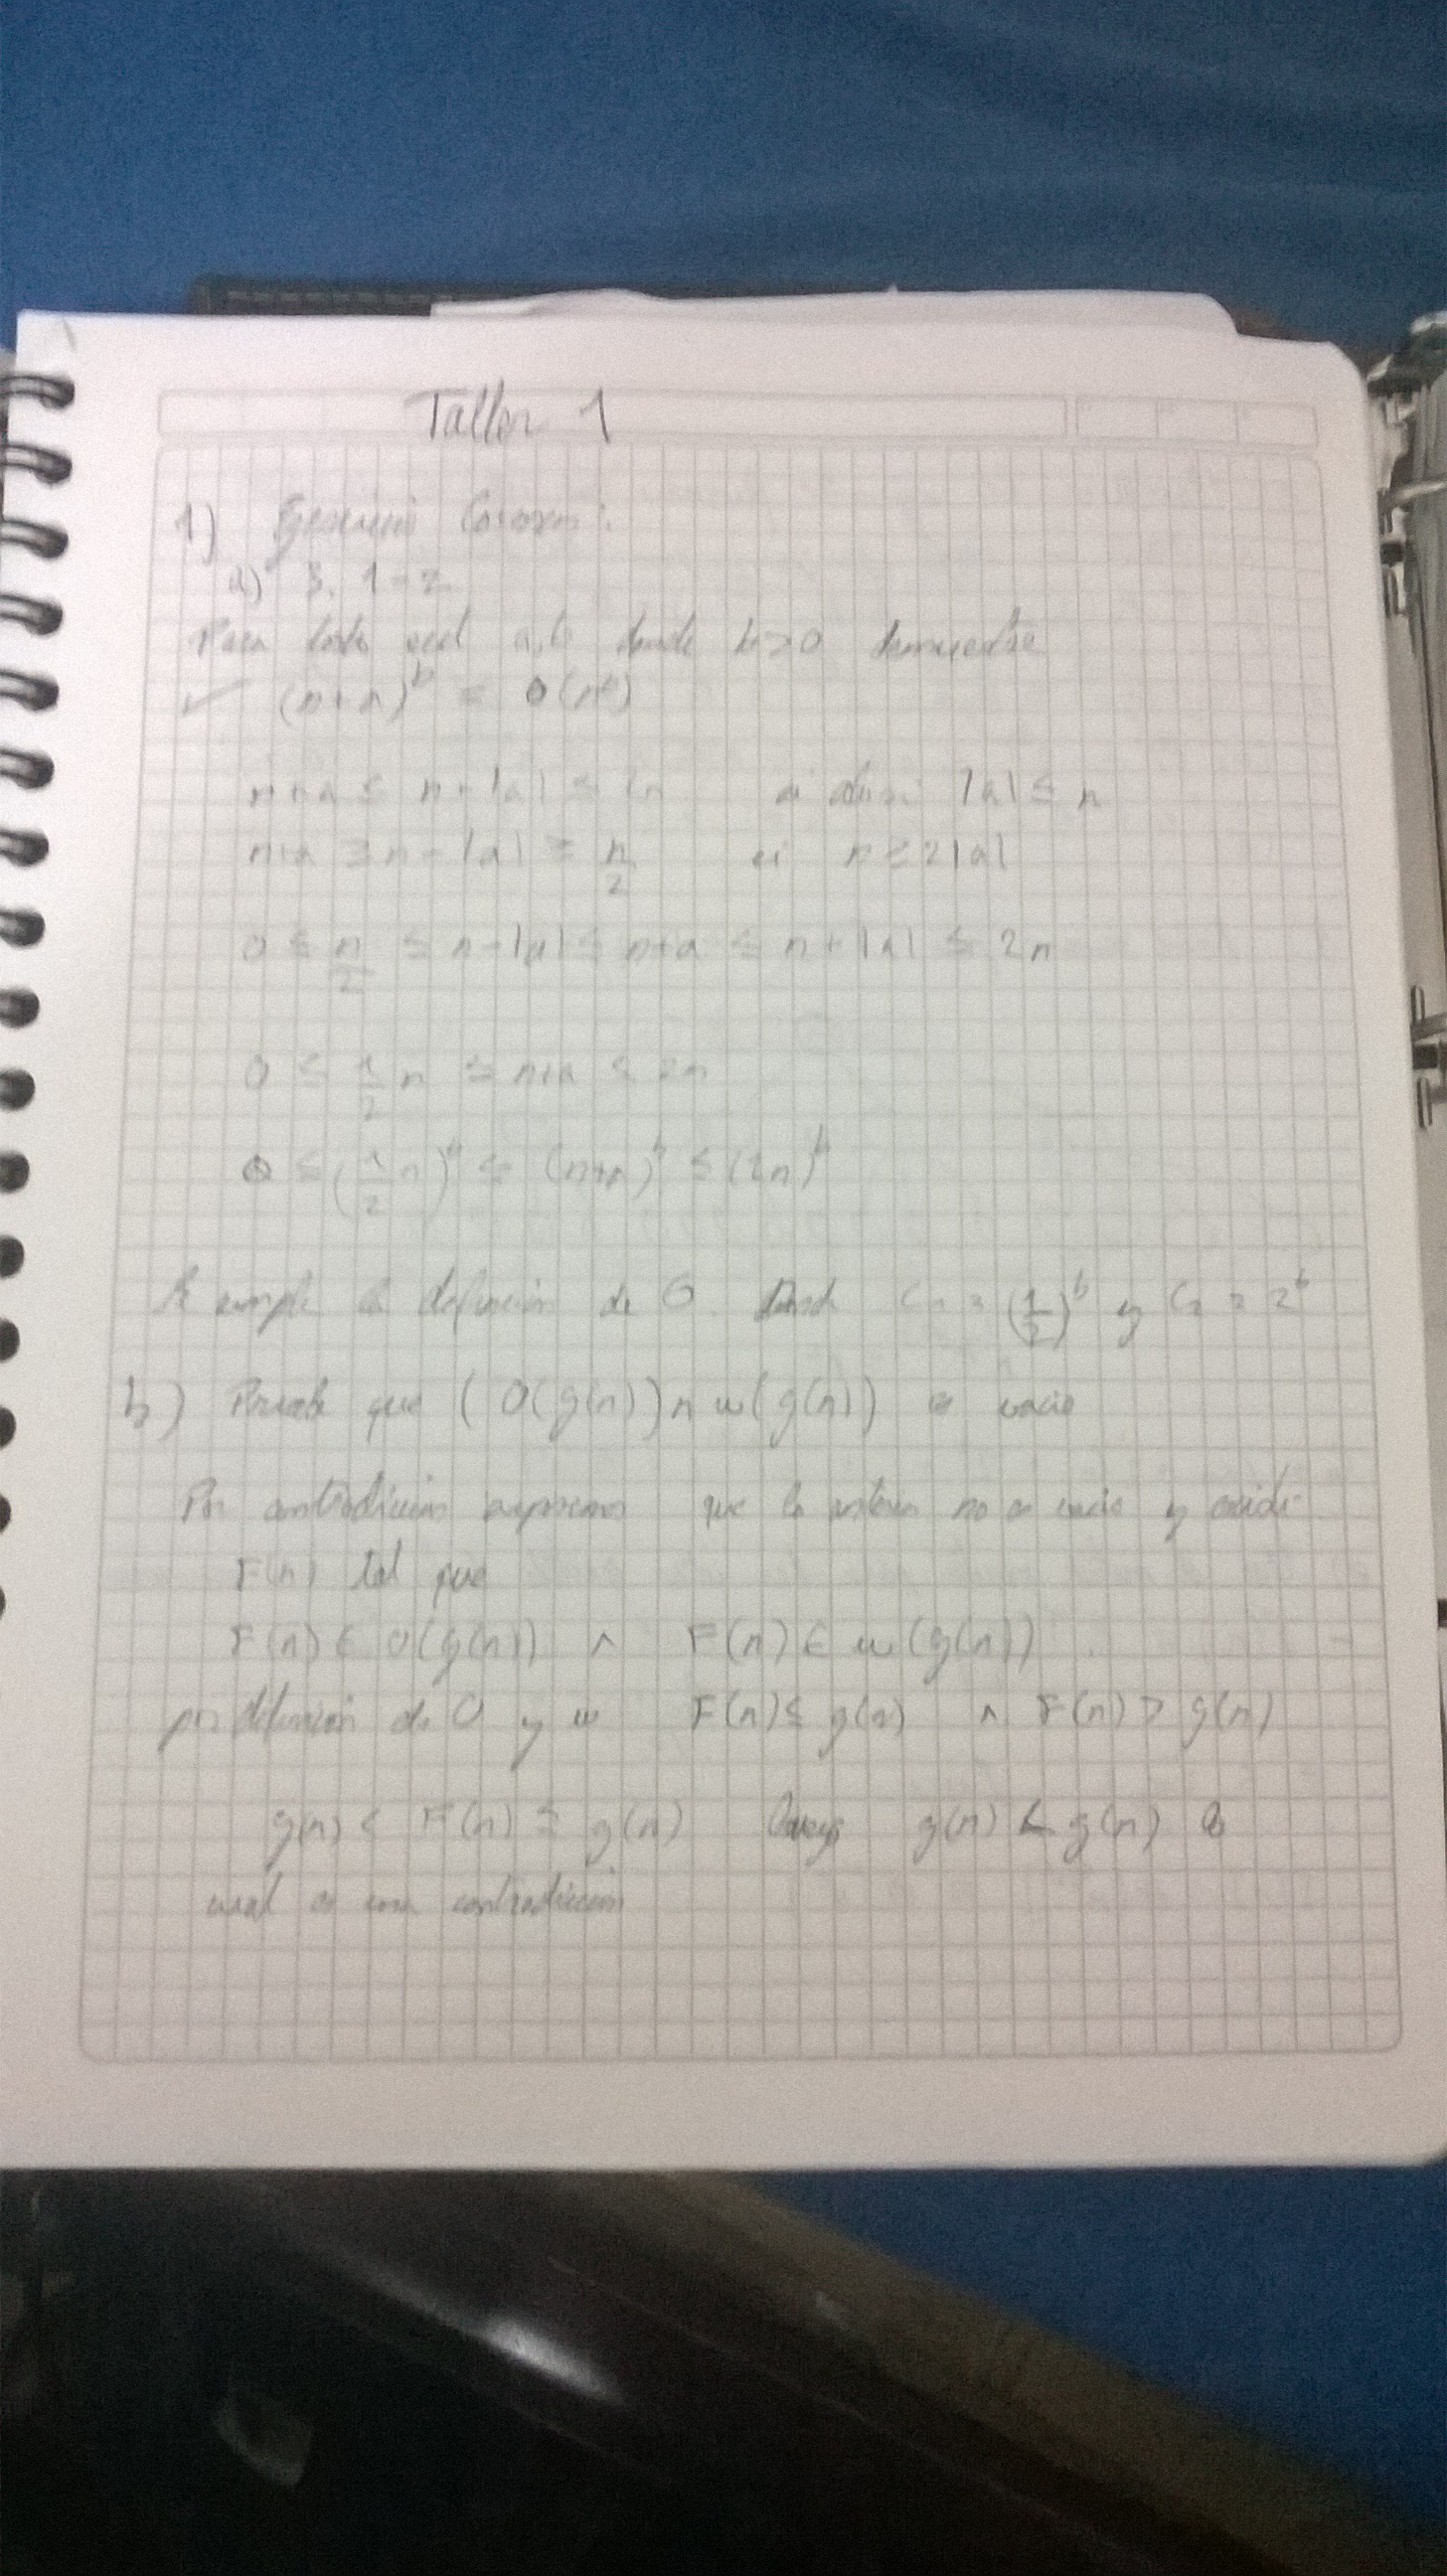 Taller 1
1) Ejercicios Cormen:
a) 3. 1-2
Para todo real a, b donde b>0 demuestre
✓ (n+a)^b = Θ(n^b)
n+a ≤ n+|a| ≤ 2n si |a| ≤ n
n+a ≥ n-|a| ≥ n/2 si n ≥ 2|a|
0 ≤ n/2 ≤ n-|a| ≤ n+a ≤ n+|a| ≤ 2n
0 ≤ 1/2 n ≤ n+a ≤ 2n
0 ≤ (1/2 n)^b ≤ (n+a)^b ≤ (2n)^b
Se cumple la definición de Θ. Donde C1 = (1/2)^b y C2 = 2^b
b) Pruebe que (O(g(n)) ∩ ω(g(n)) es vacio
Por contradicción suponemos que lo anterior no es vacio y existe
F(n) tal que
F(n) ∈ O(g(n)) ∧ F(n) ∈ ω(g(n))
por definición de O y ω F(n) ≤ g(n) ∧ F(n) > g(n)
g(n) < F(n) ≤ g(n) Luego g(n) < g(n) lo
cual es una contradicción